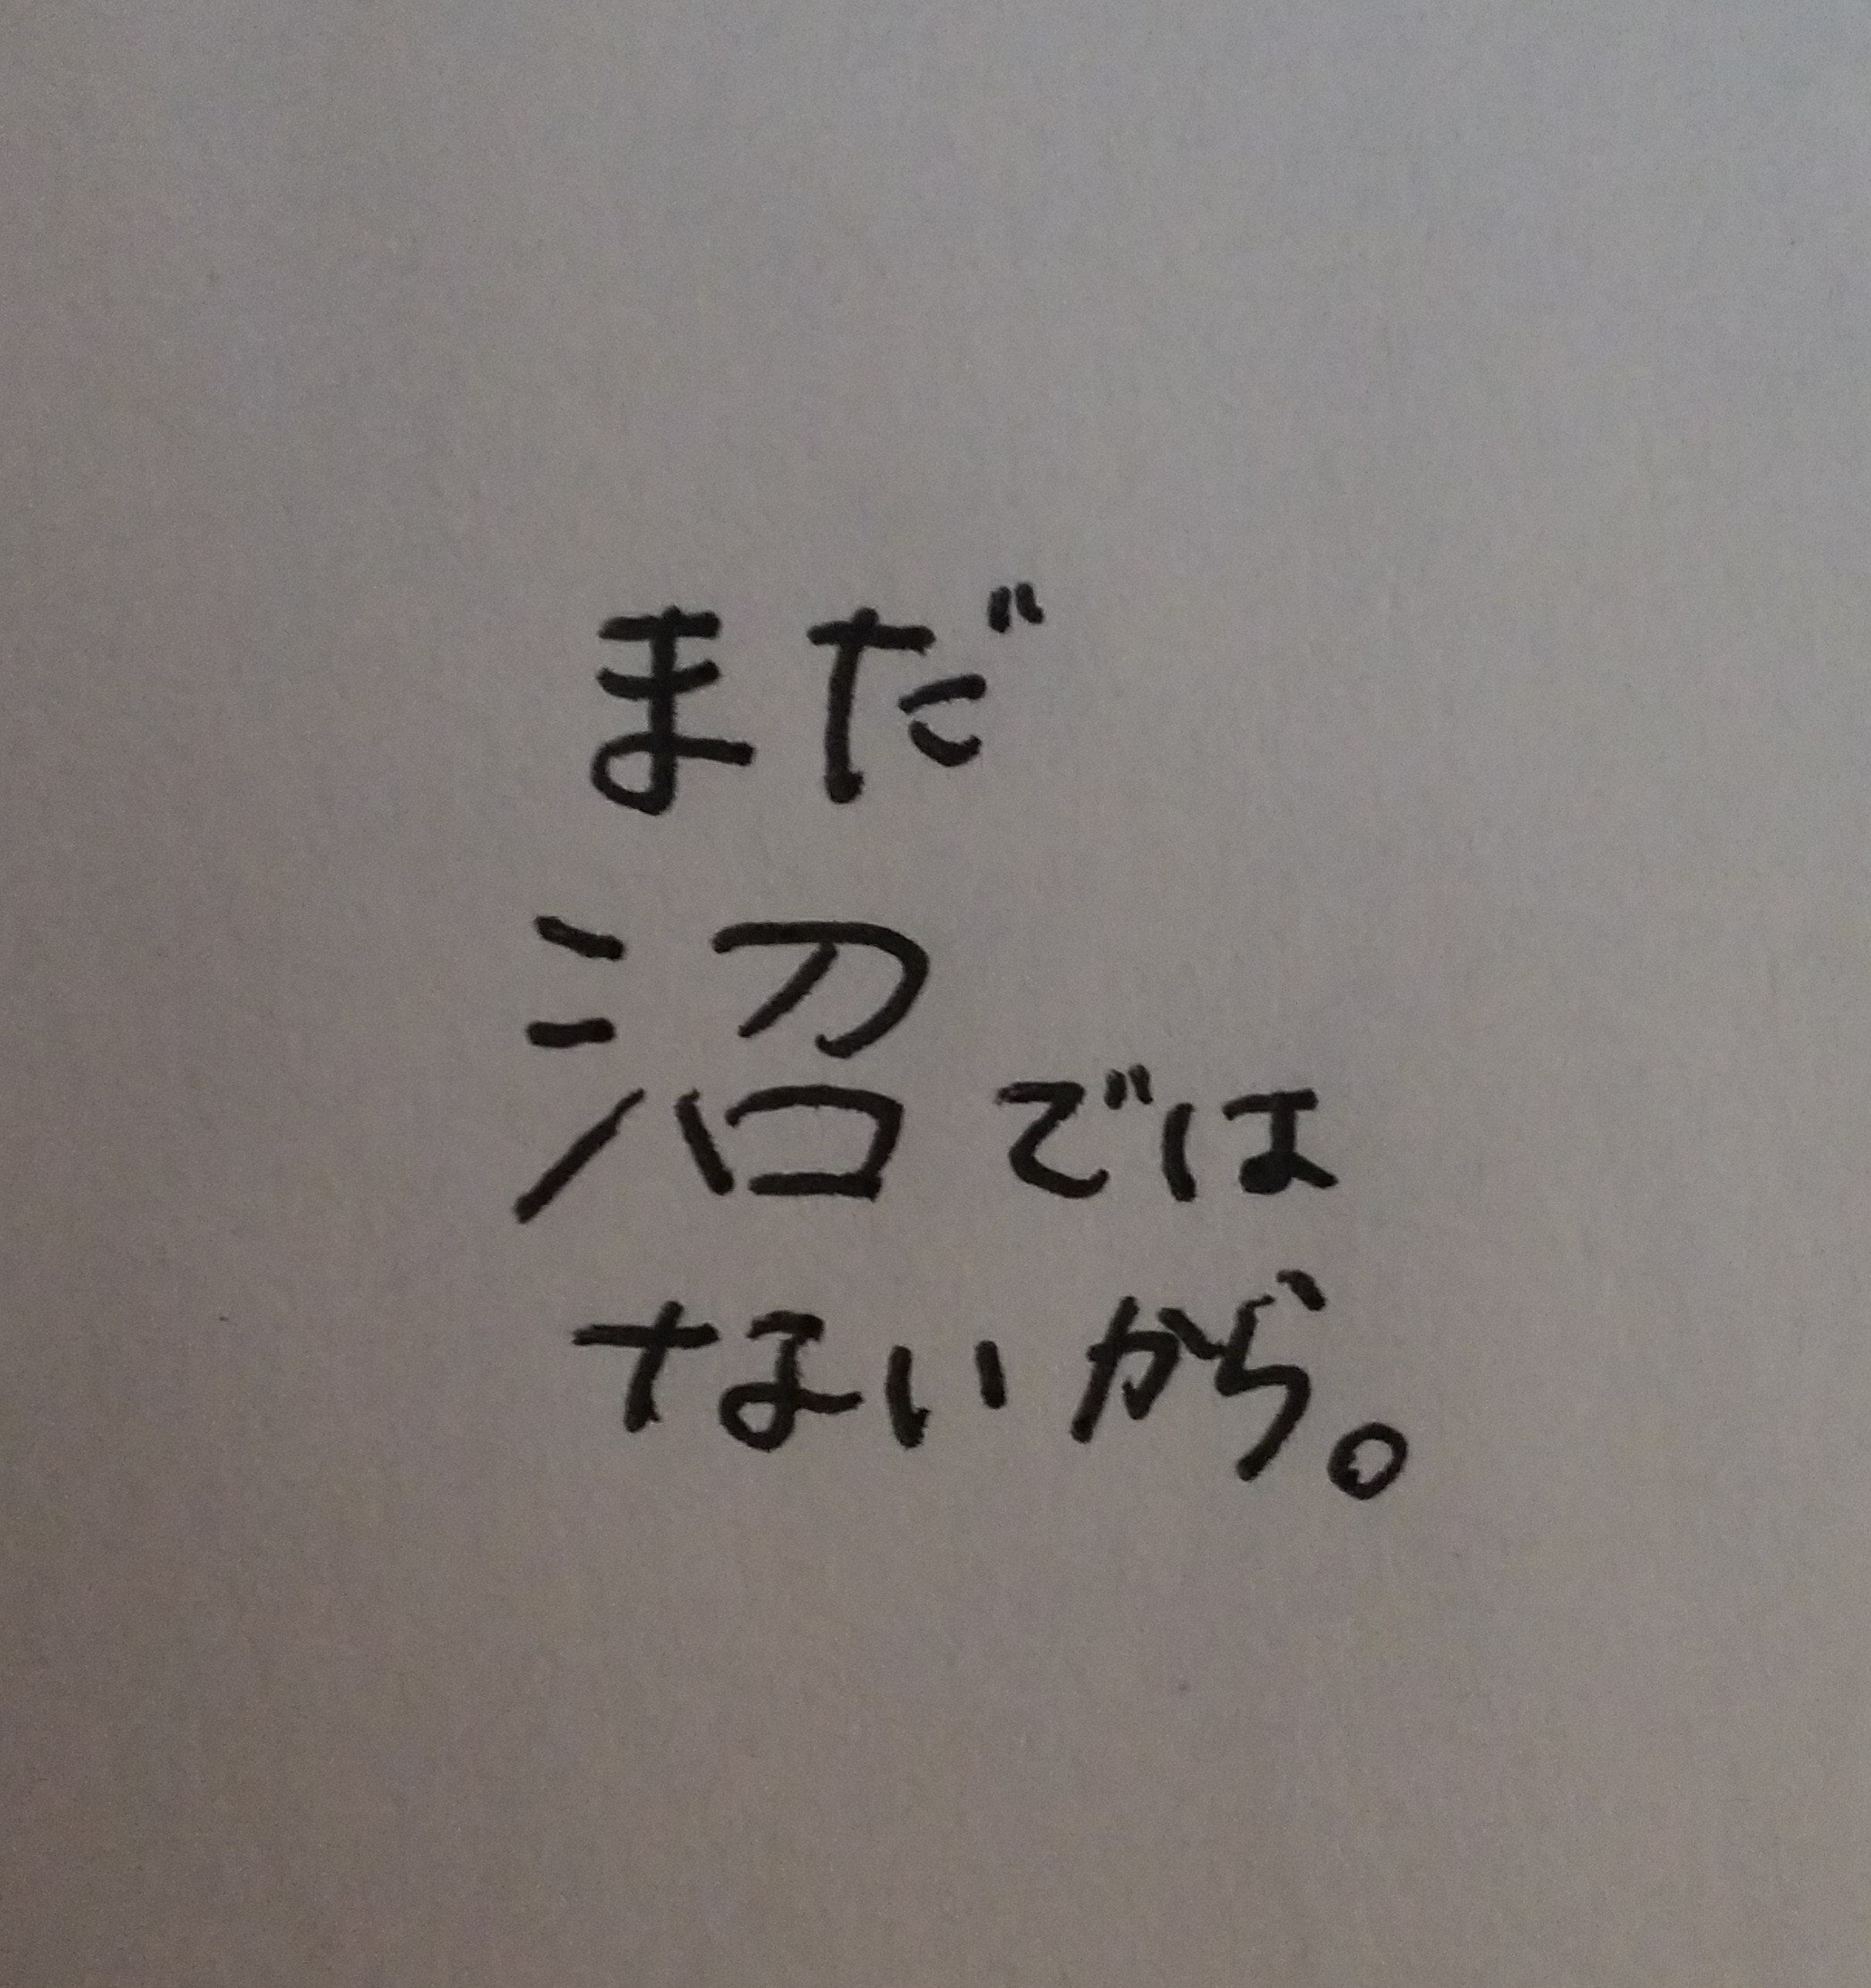 まだ
沼では
ないから。